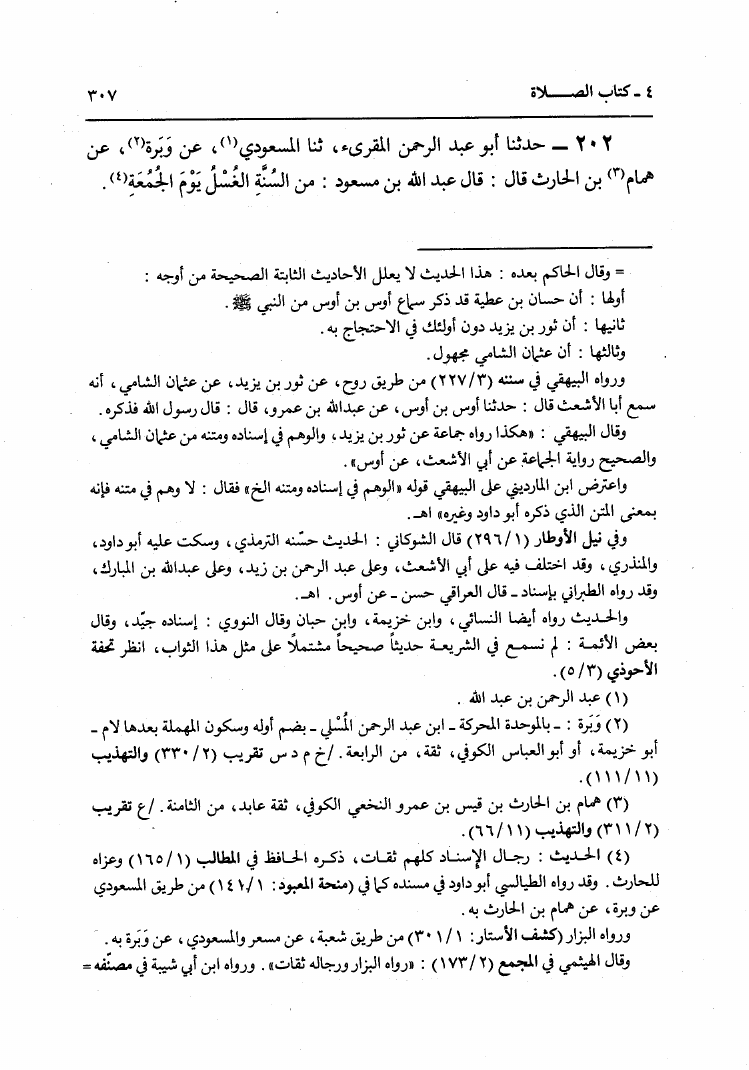 ٤ ـ كتاب الصـــــلاة ٣٠٧
٢٠٢ ــ حدثنا أبو عبد الرحمن المقرىء، ثنا المسعودي(١)، عن وَبَرة(٢)، عن
همام(٣) بن الحارث قال : قال عبد الله بن مسعود : من السُّنَّةِ الغُسْلُ يَوْمَ الجُمُعَةِ(٤).
= وقال الحاكم بعده : هذا الحديث لا يعلل الأحاديث الثابتة الصحيحة من أوجه :
أولها : أن حسان بن عطية قد ذكر سماع أوس بن أوس من النبي ﷺ.
ثانيها : أن ثور بن يزيد دون أولئك في الاحتجاج به.
وثالثها : أن عثمان الشامي مجهول.
ورواه البيهقي في سننه (٢٢٧/٣) من طريق روح، عن ثور بن يزيد، عن عثمان الشامي، أنه
سمع أبا الأشعث قال : حدثنا أوس بن أوس، عن عبدالله بن عمرو، قال : قال رسول الله فذكره.
وقال البيهقي : «هكذا رواه جماعة عن ثور بن يزيد، والوهم في إسناده ومتنه من عثمان الشامي،
والصحيح رواية الجماعة عن أبي الأشعث، عن أوس».
واعترض ابن المارديني على البيهقي قوله «الوهم في إسناده ومتنه الخ» فقال : لا وهم في متنه فإنه
بمعنى المتن الذي ذكره أبو داود وغيره» اهـ.
وفي نيل الأوطار (٢٩٦/١) قال الشوكاني : الحديث حسّنه الترمذي، وسكت عليه أبو داود،
والمنذري، وقد اختلف فيه على أبي الأشعث، وعلى عبد الرحمن بن زيد، وعلى عبدالله بن المبارك،
وقد رواه الطبراني بإسناد ـ قال العراقي حسن ـ عن أوس. اهـ.
والحديث رواه أيضا النسائي، وابن خزيمة، وابن حبان وقال النووي : إسناده جيّد، وقال
بعض الأئمة : لم نسمع في الشريعة حديثاً صحيحاً مشتملاً على مثل هذا الثواب، انظر تحفة
الأحوذي (٥/٣).
(١) عبد الرحمن بن عبد الله .
(٢) وَبَرة : ـ بالموحدة المحركة ـ ابن عبد الرحمن المُسْلي ـ بضم أوله وسكون المهملة بعدها لام ـ
أبو خزيمة، أو أبو العباس الكوفي، ثقة، من الرابعة. /خ م د س تقريب (٣٣٠/٢) والتهذيب
(١١١/١١).
(٣) همام بن الحارث بن قيس بن عمرو النخعي الكوفي، ثقة عابد، من الثامنة. /ع تقريب
(٣١١/٢) والتهذيب (٦٦/١١).
(٤) الحديث : رجال الإسناد كلهم ثقات، ذكره الحافظ في المطالب (١٦٥/١) وعزاه
للحارث. وقد رواه الطيالسي أبو داود في مسنده كما في (منحة المعبود: ١٤١/١) من طريق المسعودي
عن وبرة، عن همام بن الحارث به.
ورواه البزار (كشف الأستار: ٣٠١/١) من طريق شعبة، عن مسعر والمسعودي، عن وَبَرة به.
وقال الهيثمي في المجمع (١٧٣/٢) : «رواه البزار ورجاله ثقات». ورواه ابن أبي شيبة في مصنّفه =